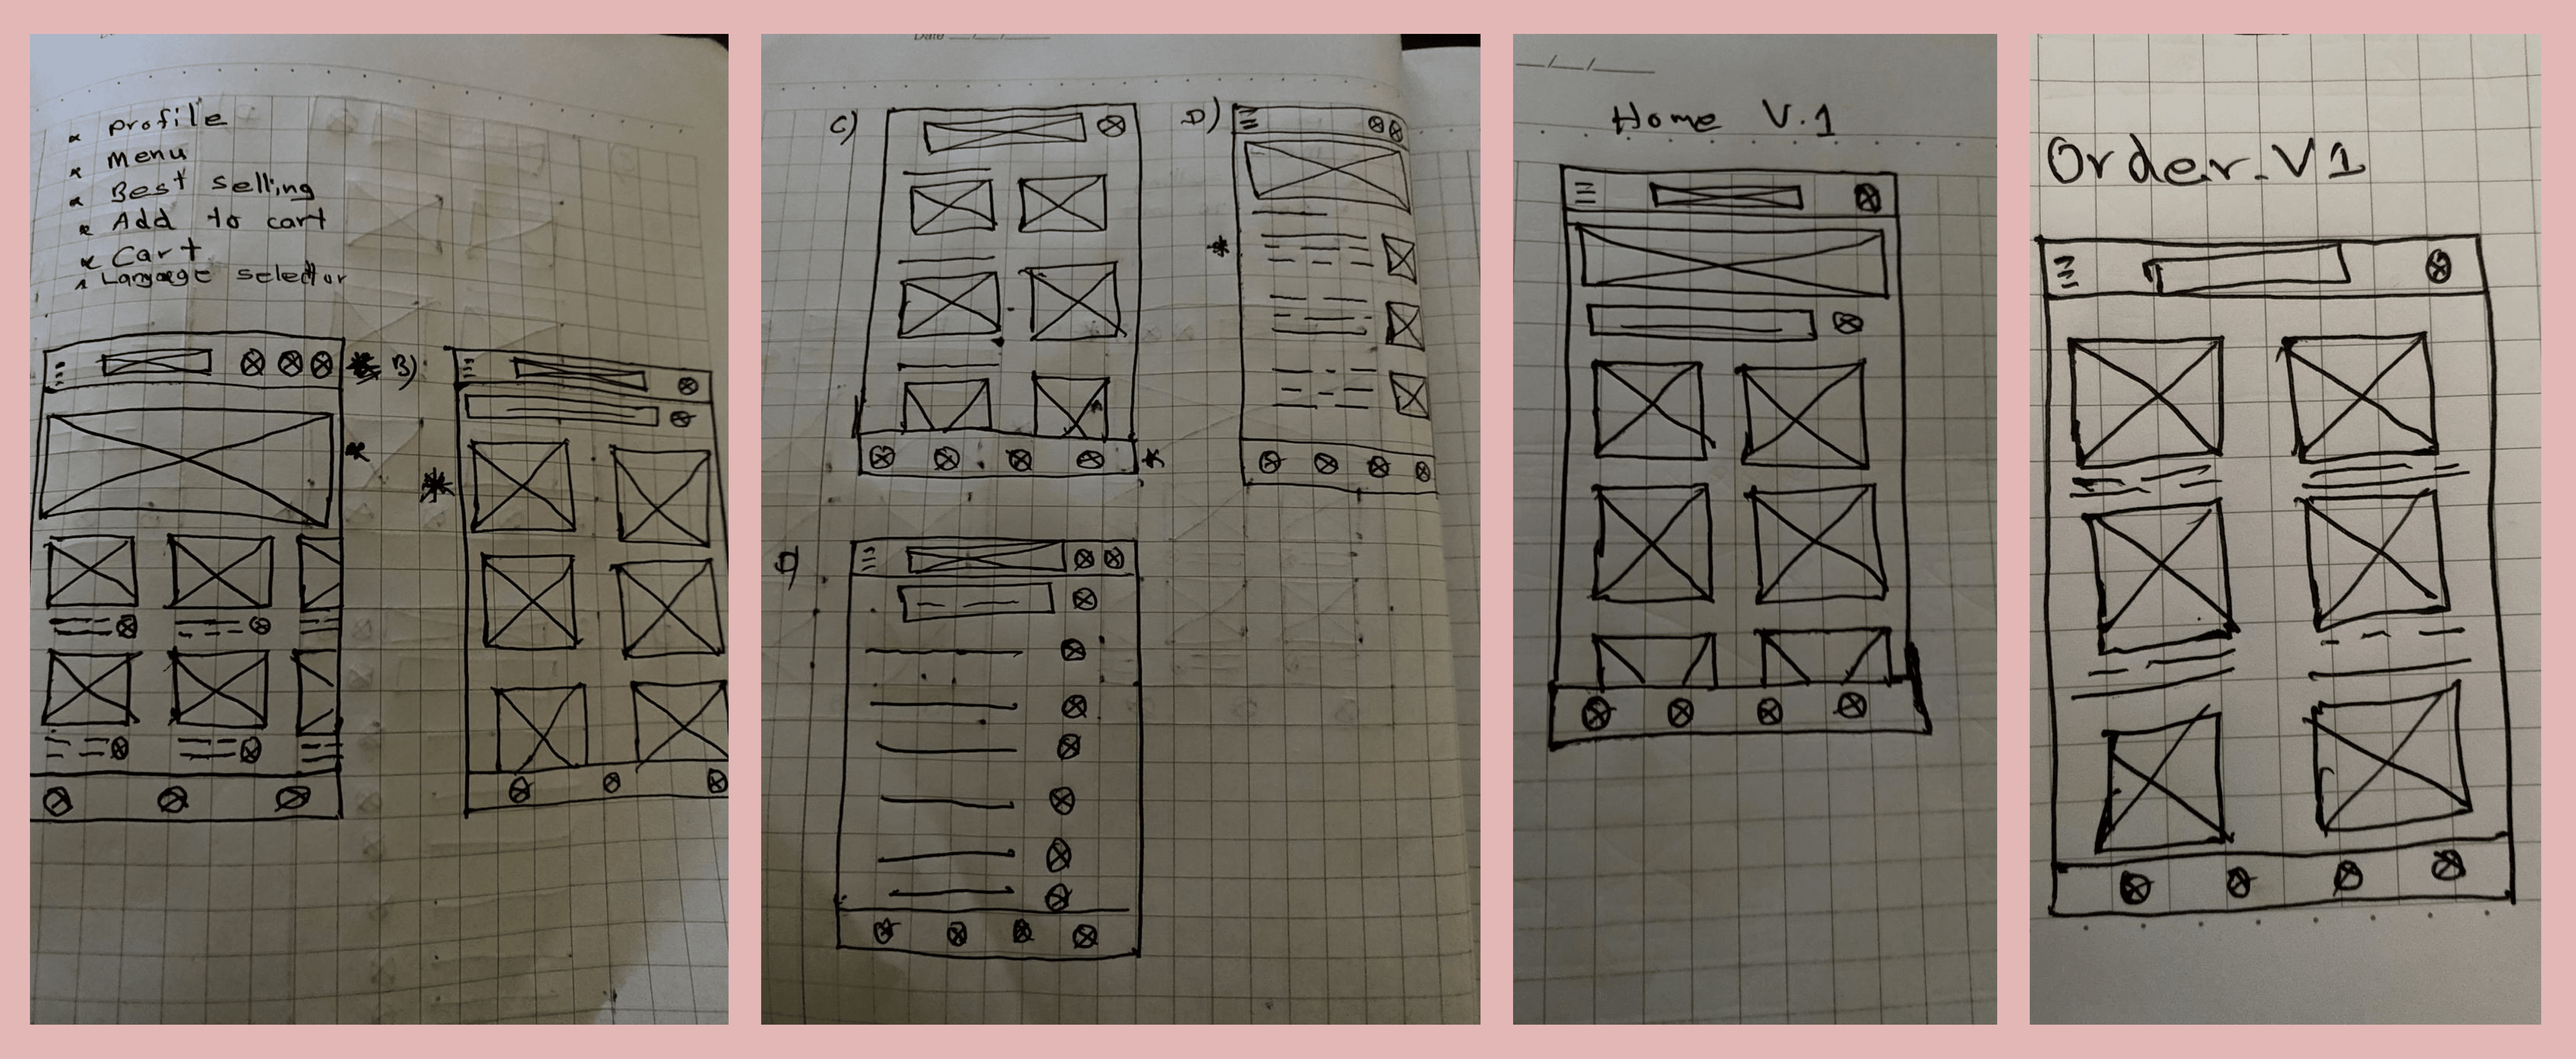 Profile
Menu
Best selling
Add to cart
Cart
Langaege selector
B)
Date
C)
D)
D)
Home V.1
Order.V1